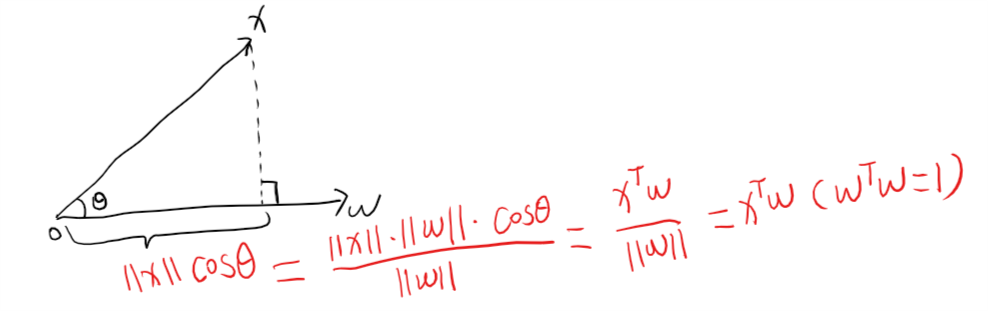 x
θ
w
0
||x|| cosθ = \frac{||x||·||w||· cosθ}{||w||} = \frac{x^T w}{||w||} = x^T w (w^T w = 1)